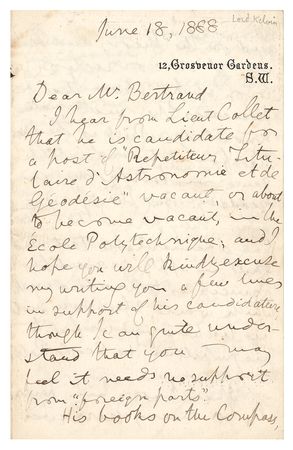 Lord Kelvin
June 18, 1888
12, Grosvenor Gardens.
S.W.
Dear Mr Bertrand
I hear from Lieut Collet
that he is candidate for
a post of "Repetiteur Titu-
laire d'Astronomie et de
Géodésie" vacant, or about
to become vacant, in the
Ecole Polytechnique, and I
hope you will kindly excuse
my writing you a few lines
in support of his candidature
though I can quite under-
stand that you may
feel it needs no support
from "foreign parts".
His books on the Compass,